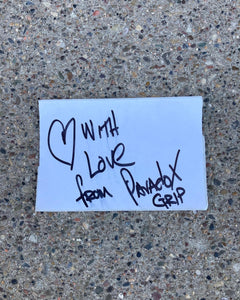 ♡ WITH
LOVE
from PARADOX
GRIP